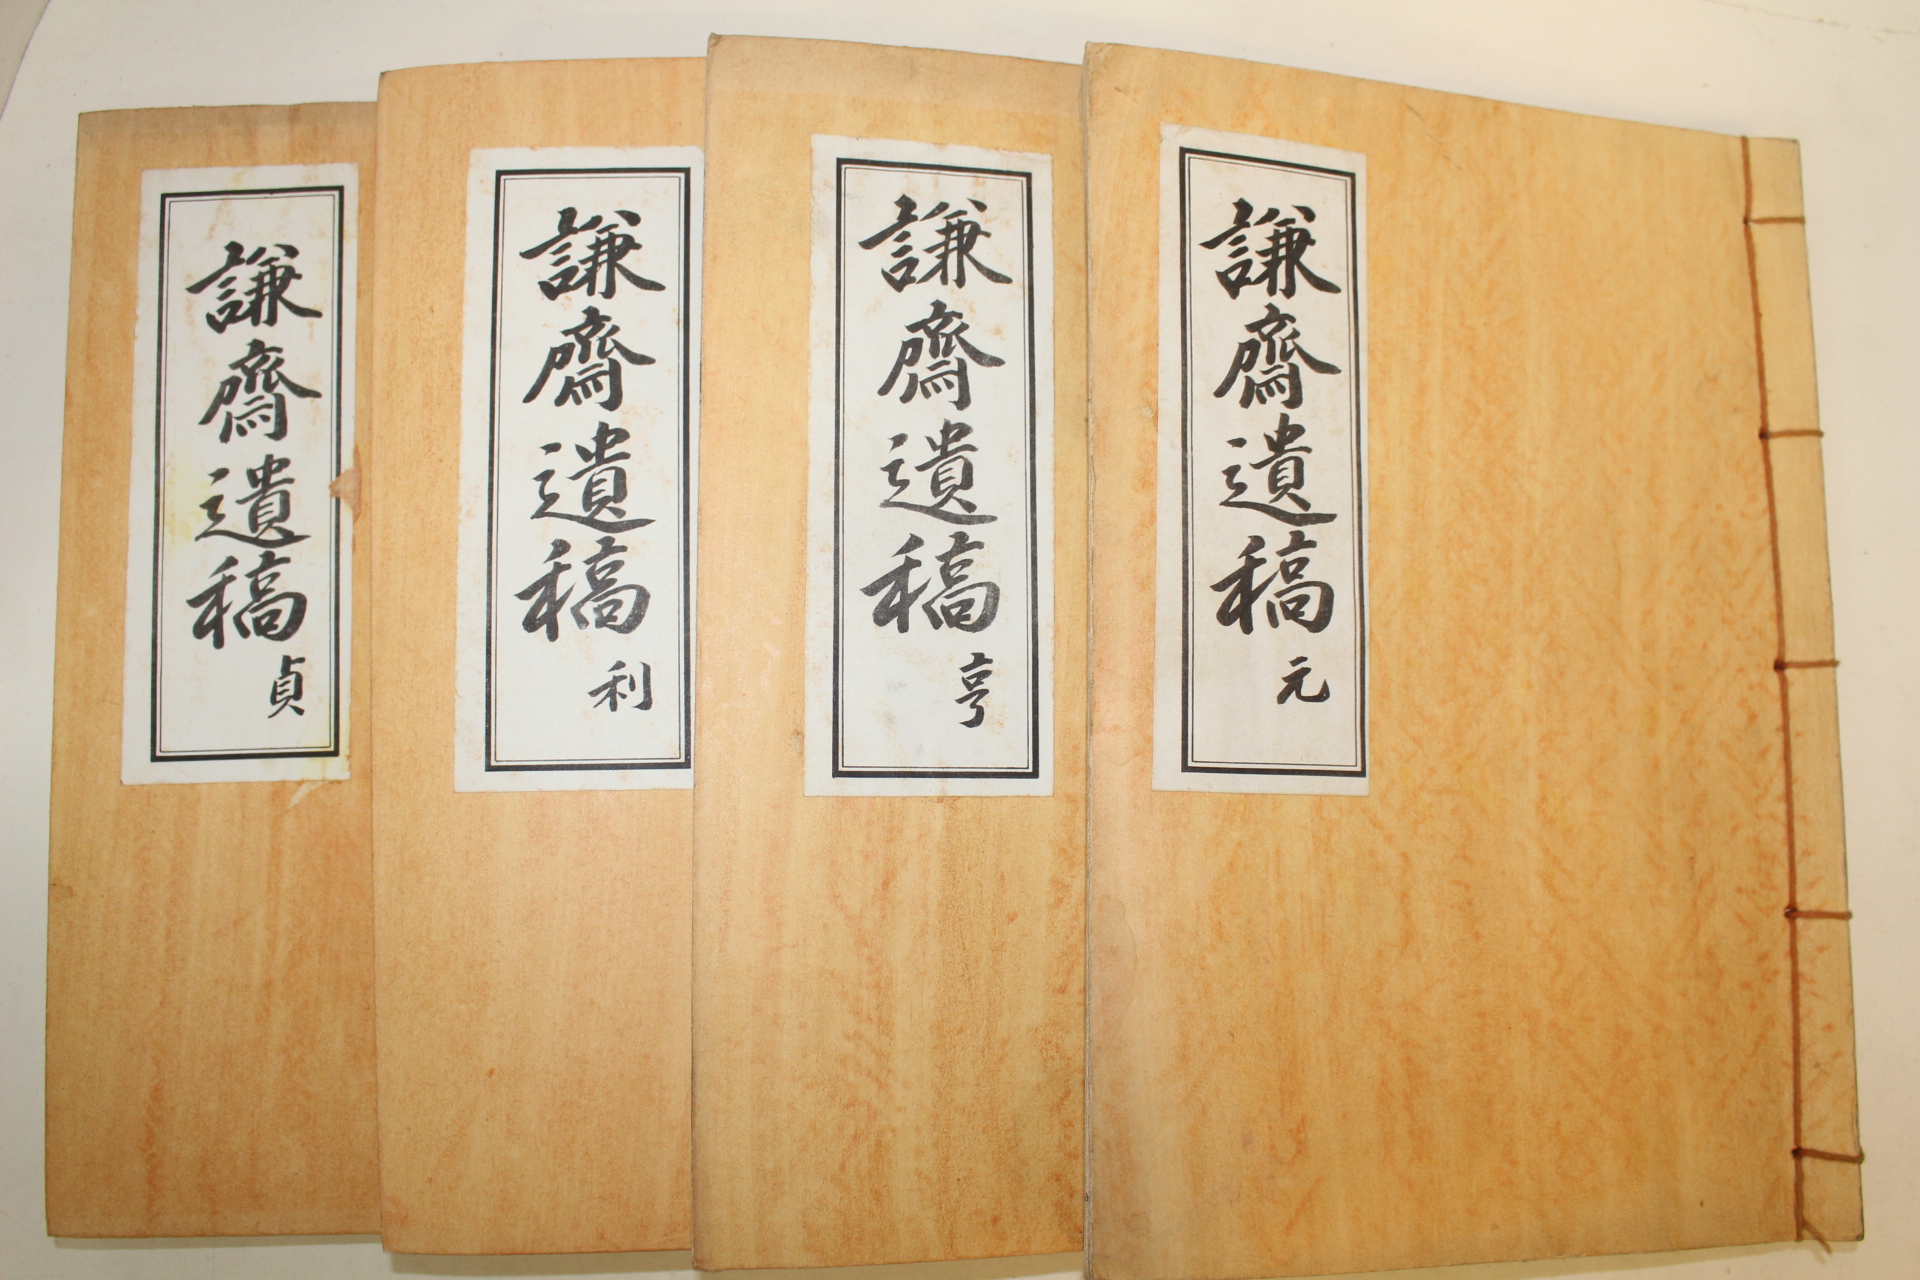 謙齋遺稿 元
謙齋遺稿 亨
謙齋遺稿 利
謙齋遺稿 貞